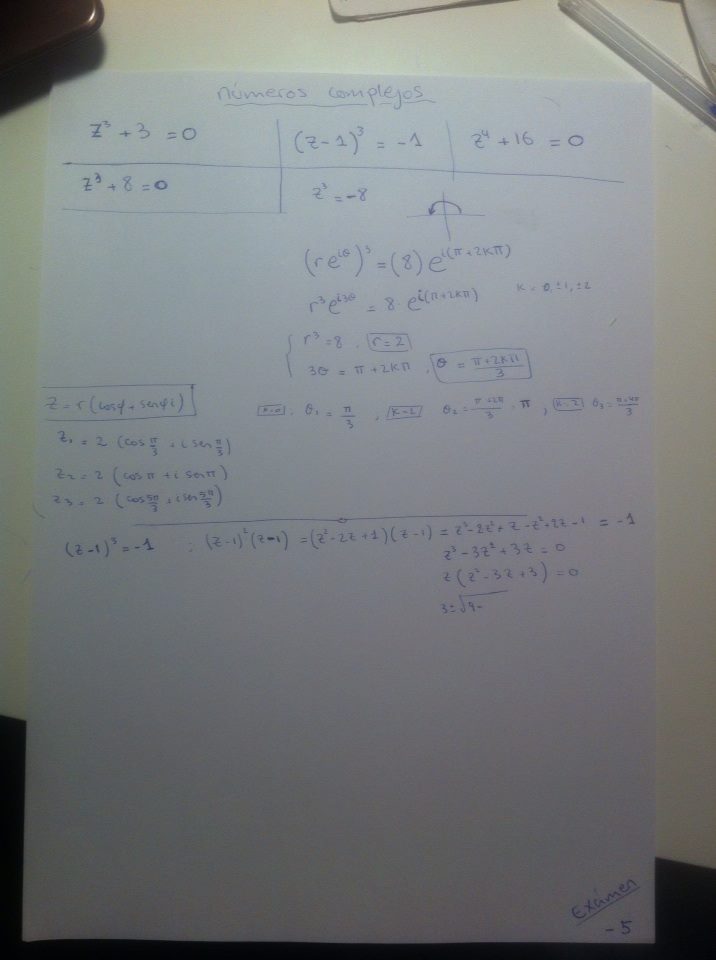 números complejos
z³ + 3 = 0
(z-1)³ = -1
z⁴ + 16 = 0
z³ + 8 = 0
z³ = -8
(r e^{iθ})³ = (8) e^{i(π+2kπ)}
r³ e^{i3θ} = 8 · e^{i(π+2kπ)} k = 0, ±1, ±2
r³ = 8 , r = 2
3θ = π + 2kπ , θ = \frac{π+2kπ}{3}
z = r (cosφ + senφ i)
k=0 : θ₁ = \frac{π}{3} , k=2 θ₂ = \frac{π+2π}{3} = π , k=2 θ₃ = \frac{π+4π}{3}
z₁ = 2 (cos \frac{π}{3} + i sen \frac{π}{3})
z₂ = 2 (cos π + i sen π)
z₃ = 2 (cos \frac{5π}{3} + i sen \frac{5π}{3})
(z-1)³ = -1 ; (z-1)² (z-1) = (z² - 2z + 1) (z-1) = z³ - 2z² + z - z² + 2z - 1 = -1
z³ - 3z² + 3z = 0
z (z² - 3z + 3) = 0
3 ± √9-
Exámen
-5